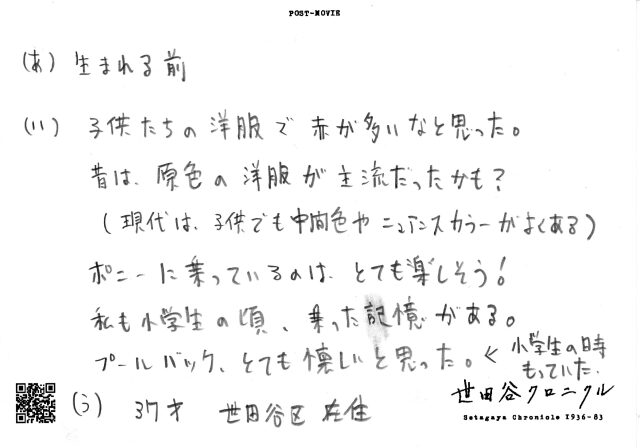 POST-MOVIE
(あ) 生まれる前
(い) 子供たちの洋服で赤が多いなと思った。
昔は、原色の洋服が主流だったかも?
(現代は、子供でも中間色やニュアンスカラーがよくある)
ポニーに乗っているのは、とても楽しそう!
私も小学生の頃、乗った記憶がある。
プールバック、とても懐しいと思った。< 小学生の時
もっていた。
(う) 37才 世田谷区 在住
世田谷クロニクル
Setagaya Chronicle 1936-83